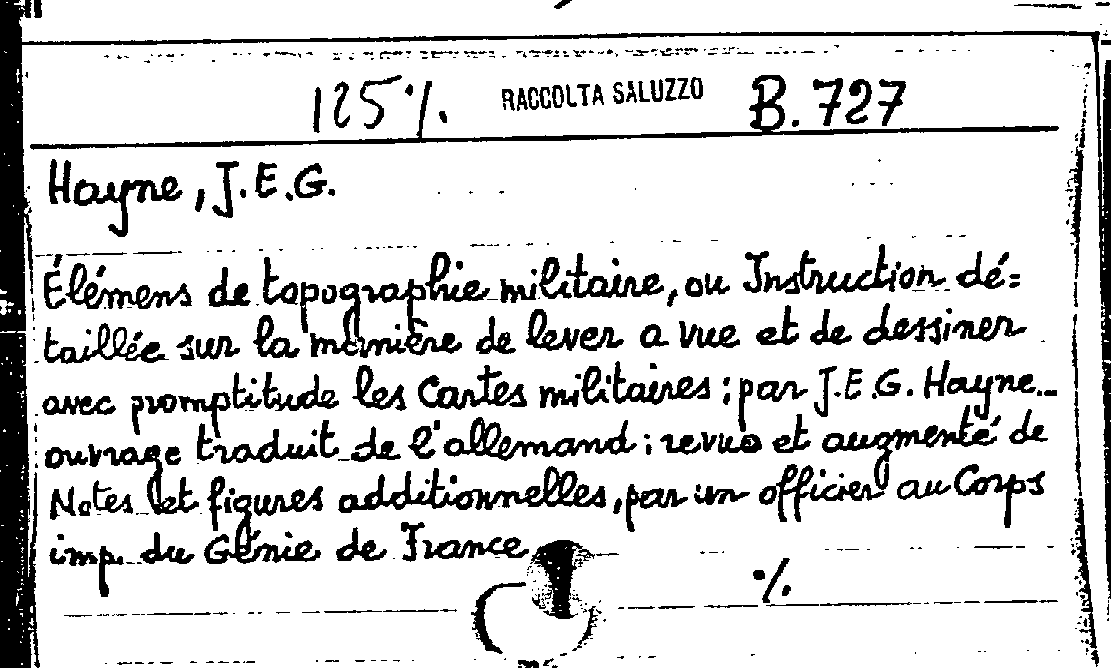 125 ·/. RACCOLTA SALUZZO B. 727
Hayne, J.E.G.
Élémens de topographie militaire, ou Instruction dé=
taillée sur la manière de lever a vue et de dessiner
avec promptitude les Cartes militaires; par J.E.G. Hayne...
ouvrage traduit de l'allemand; revue et augmenté de
Notes et figures additionnelles, par un officier au Corps
imp. du Génie de France
·/.